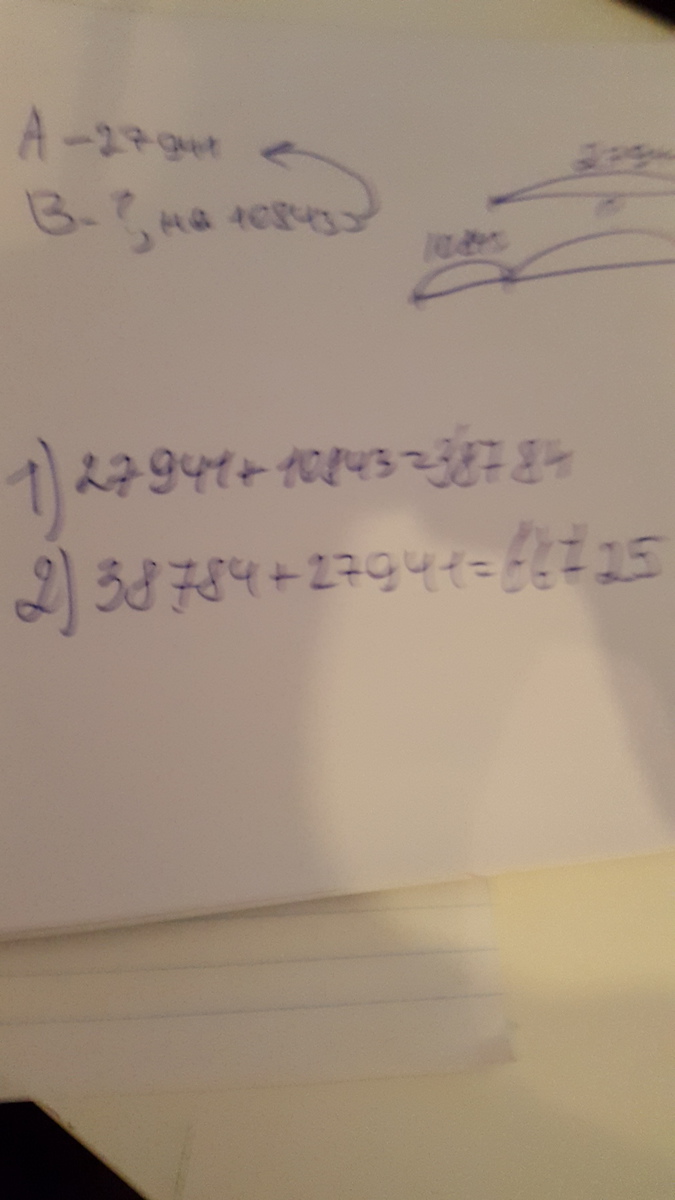 A - 27941
B - ?, на 10843
1) 27941 + 10843 = 38784
2) 38784 + 27941 = 66725